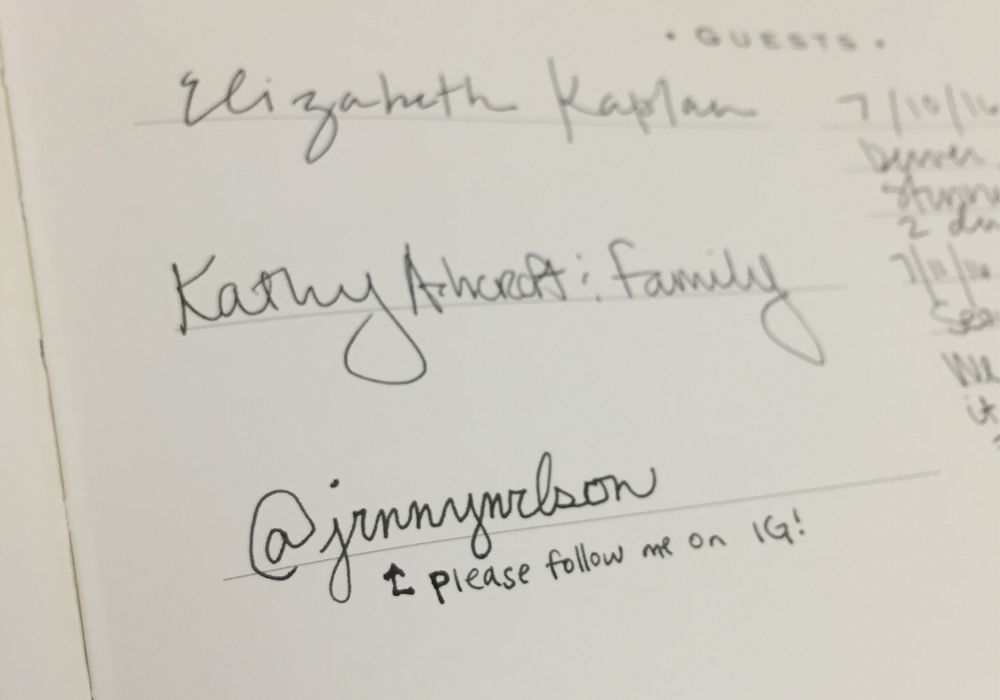 • GUESTS •
Elizabeth Kaplan 7/10/16
Denver
2
Kathy Ashcroft & family 7/11/16
We
it
@jennynelson
↑ please follow me on IG!